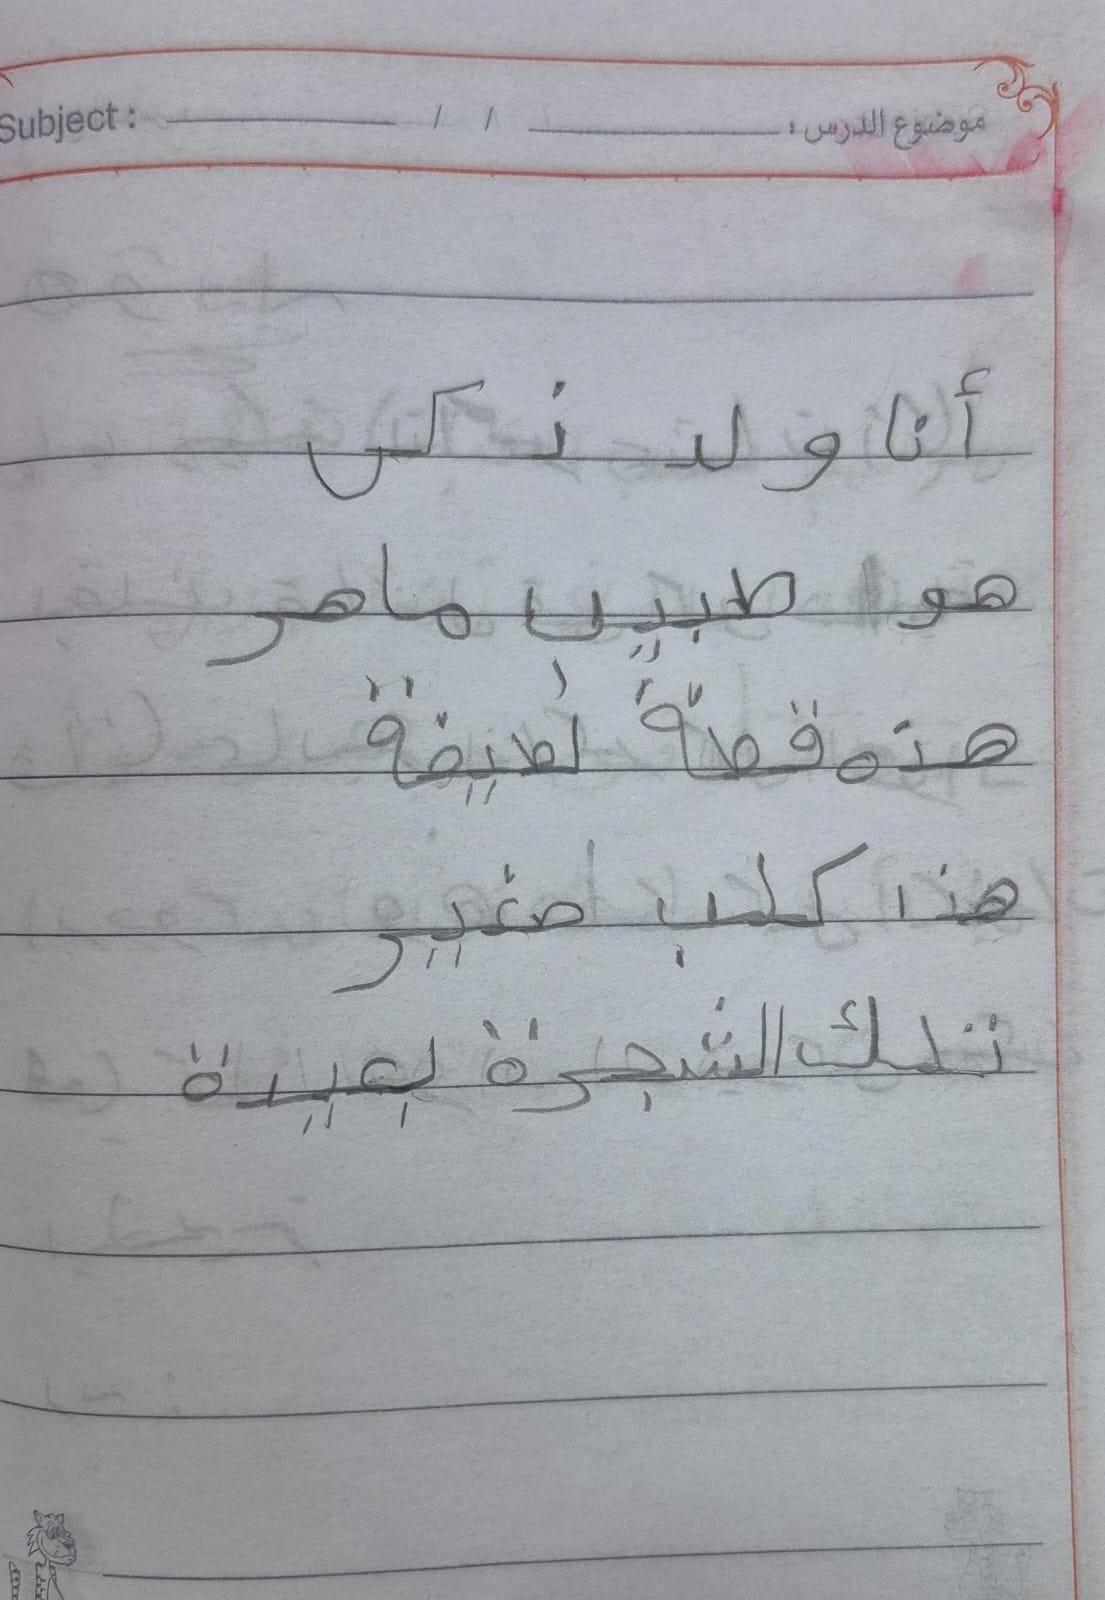 Subject : / / موضوع الدرس :
أنا ولد ذكى
هو طبيب ماهر
هذه قطة لطيفة
هذا كلب صغير
تلك الشجرة بعيدة